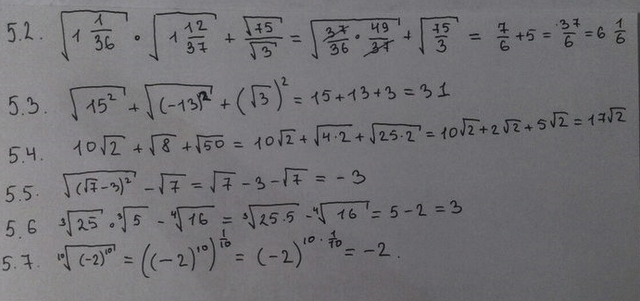 5.2. √(1 1/36) · √(1 12/37) + √75/√3 = √(37/36 · 49/37) + √(75/3) = 7/6 + 5 = 37/6 = 6 1/6
5.3. √(15²) + √((-13)²) + (√3)² = 15 + 13 + 3 = 31
5.4. 10√2 + √8 + √50 = 10√2 + √(4·2) + √(25·2) = 10√2 + 2√2 + 5√2 = 17√2
5.5. √((√7-3)²) - √7 = √7 - 3 - √7 = -3
5.6 ³√25 · ³√5 - ⁴√16 = ³√(25·5) - ⁴√16 = 5 - 2 = 3
5.7. ¹⁰√((-2)¹⁰) = ((-2)^10)^(1/10) = (-2)^(10 · 1/10) = -2.